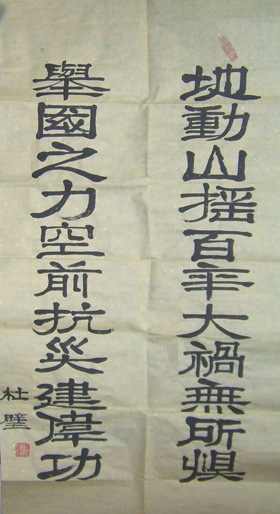 地動山摇百年大禍無所惧
舉國之力空前抗災建偉功
杜璧